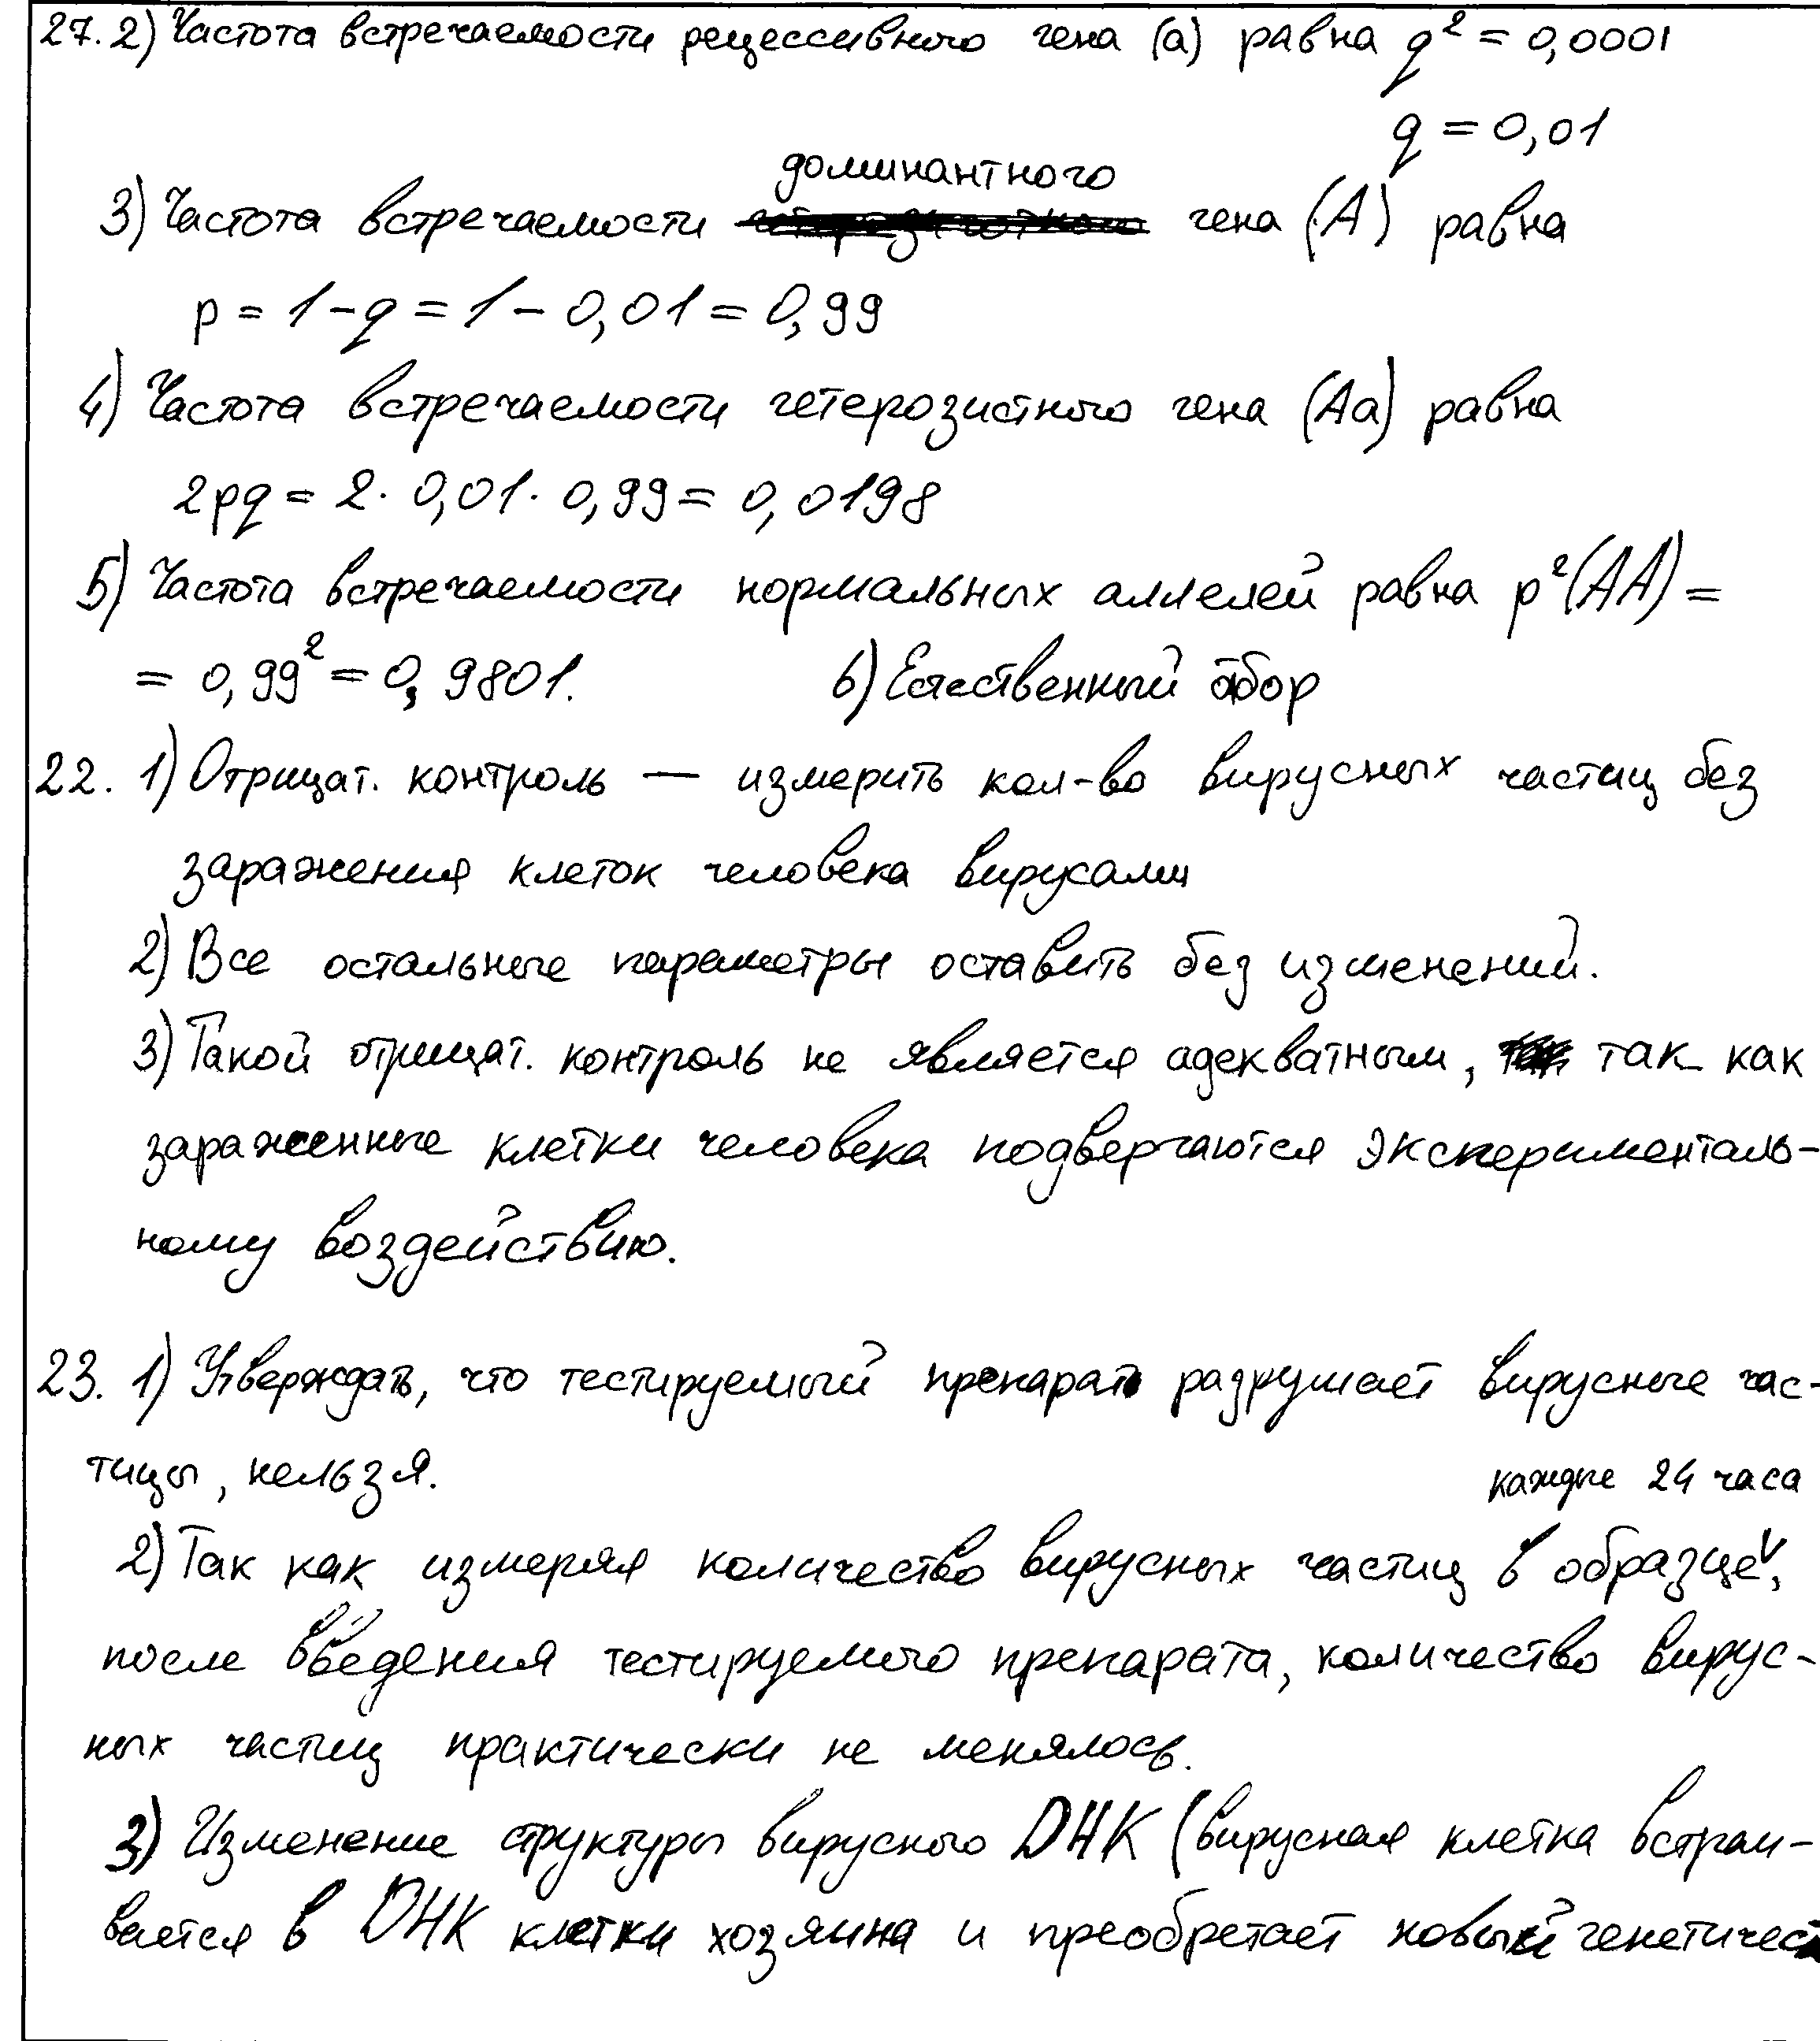 27. 2) Частота встречаемости рецессивного гена (а) равна q² = 0,0001
q = 0,01
доминантного
3) Частота встречаемости гена (А) равна
p = 1 - q = 1 - 0,01 = 0,99
4) Частота встречаемости гетерозистного гена (Аа) равна
2pq = 2 · 0,01 · 0,99 = 0,0198
5) Частота встречаемости нормальных аллелей равна p²(АА) =
= 0,99² = 0,9801. 6) Естественный отбор
22. 1) Отрицат. контроль — измерить кол-во вирусных частиц без
заражения клеток человека вирусами
2) Все остальные параметры оставить без изменений.
3) Такой отрицат. контроль не является адекватным, так как
зараженные клетки человека подвергаются эксперименталь-
ному воздействию.
23. 1) Утверждать, что тестируемый препарат разрушает вирусные час-
тицы, нельзя.
каждые 24 часа
2) Так как измеряя количество вирусных частиц в образце,
после введения тестируемого препарата, количество вирус-
ных частиц практически не менялось.
3) Изменение структуры вирусного ДНК (вирусная клетка встраи-
вается в ДНК клетки хозяина и преобретает новый генетичес